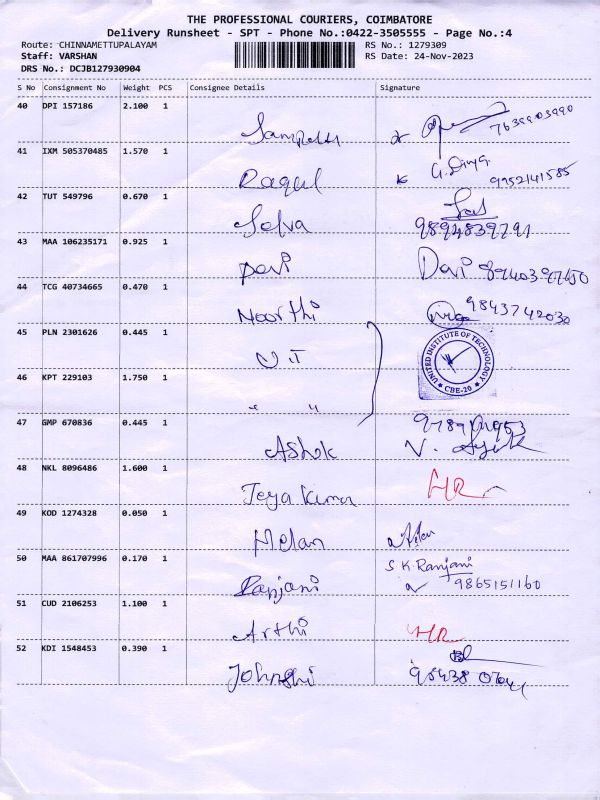 THE PROFESSIONAL COURIERS, COIMBATORE
Delivery Runsheet - SPT - Phone No.:0422-3505555 - Page No.:4
Route: CHINNAMETTUPALAYAM RS No.: 1279309
Staff: VARSHAN RS Date: 24-Nov-2023
DRS No.: DCJB127930904
S No Consignment No Weight PCS Consignee Details Signature
40 DPI 157186 2.100 1
7639903990
41 IXM 505370485 1.570 1
Ragul G. Divya 9952141585
42 TUT 549796 0.670 1
Selva 9894839791
43 MAA 106235171 0.925 1
Devi Devi
44 TCG 40734665 0.470 1
Moorthi 9843742030
45 PLN 2301626 0.445 1
U.T UNITED INSTITUTE OF TECHNOLOGY CBE-20
46 KPT 229103 1.750 1
" "
47 GMP 670836 0.445 1
Ashok
48 NKL 8096486 1.600 1
Jeya Kumar HR
49 KOD 1274328 0.050 1
Melan
50 MAA 861707996 0.170 1
Ranjani S K Ranjani
9865151160
51 CUD 2106253 1.100 1
Arthi HR
52 KDI 1548453 0.390 1
Johnshi